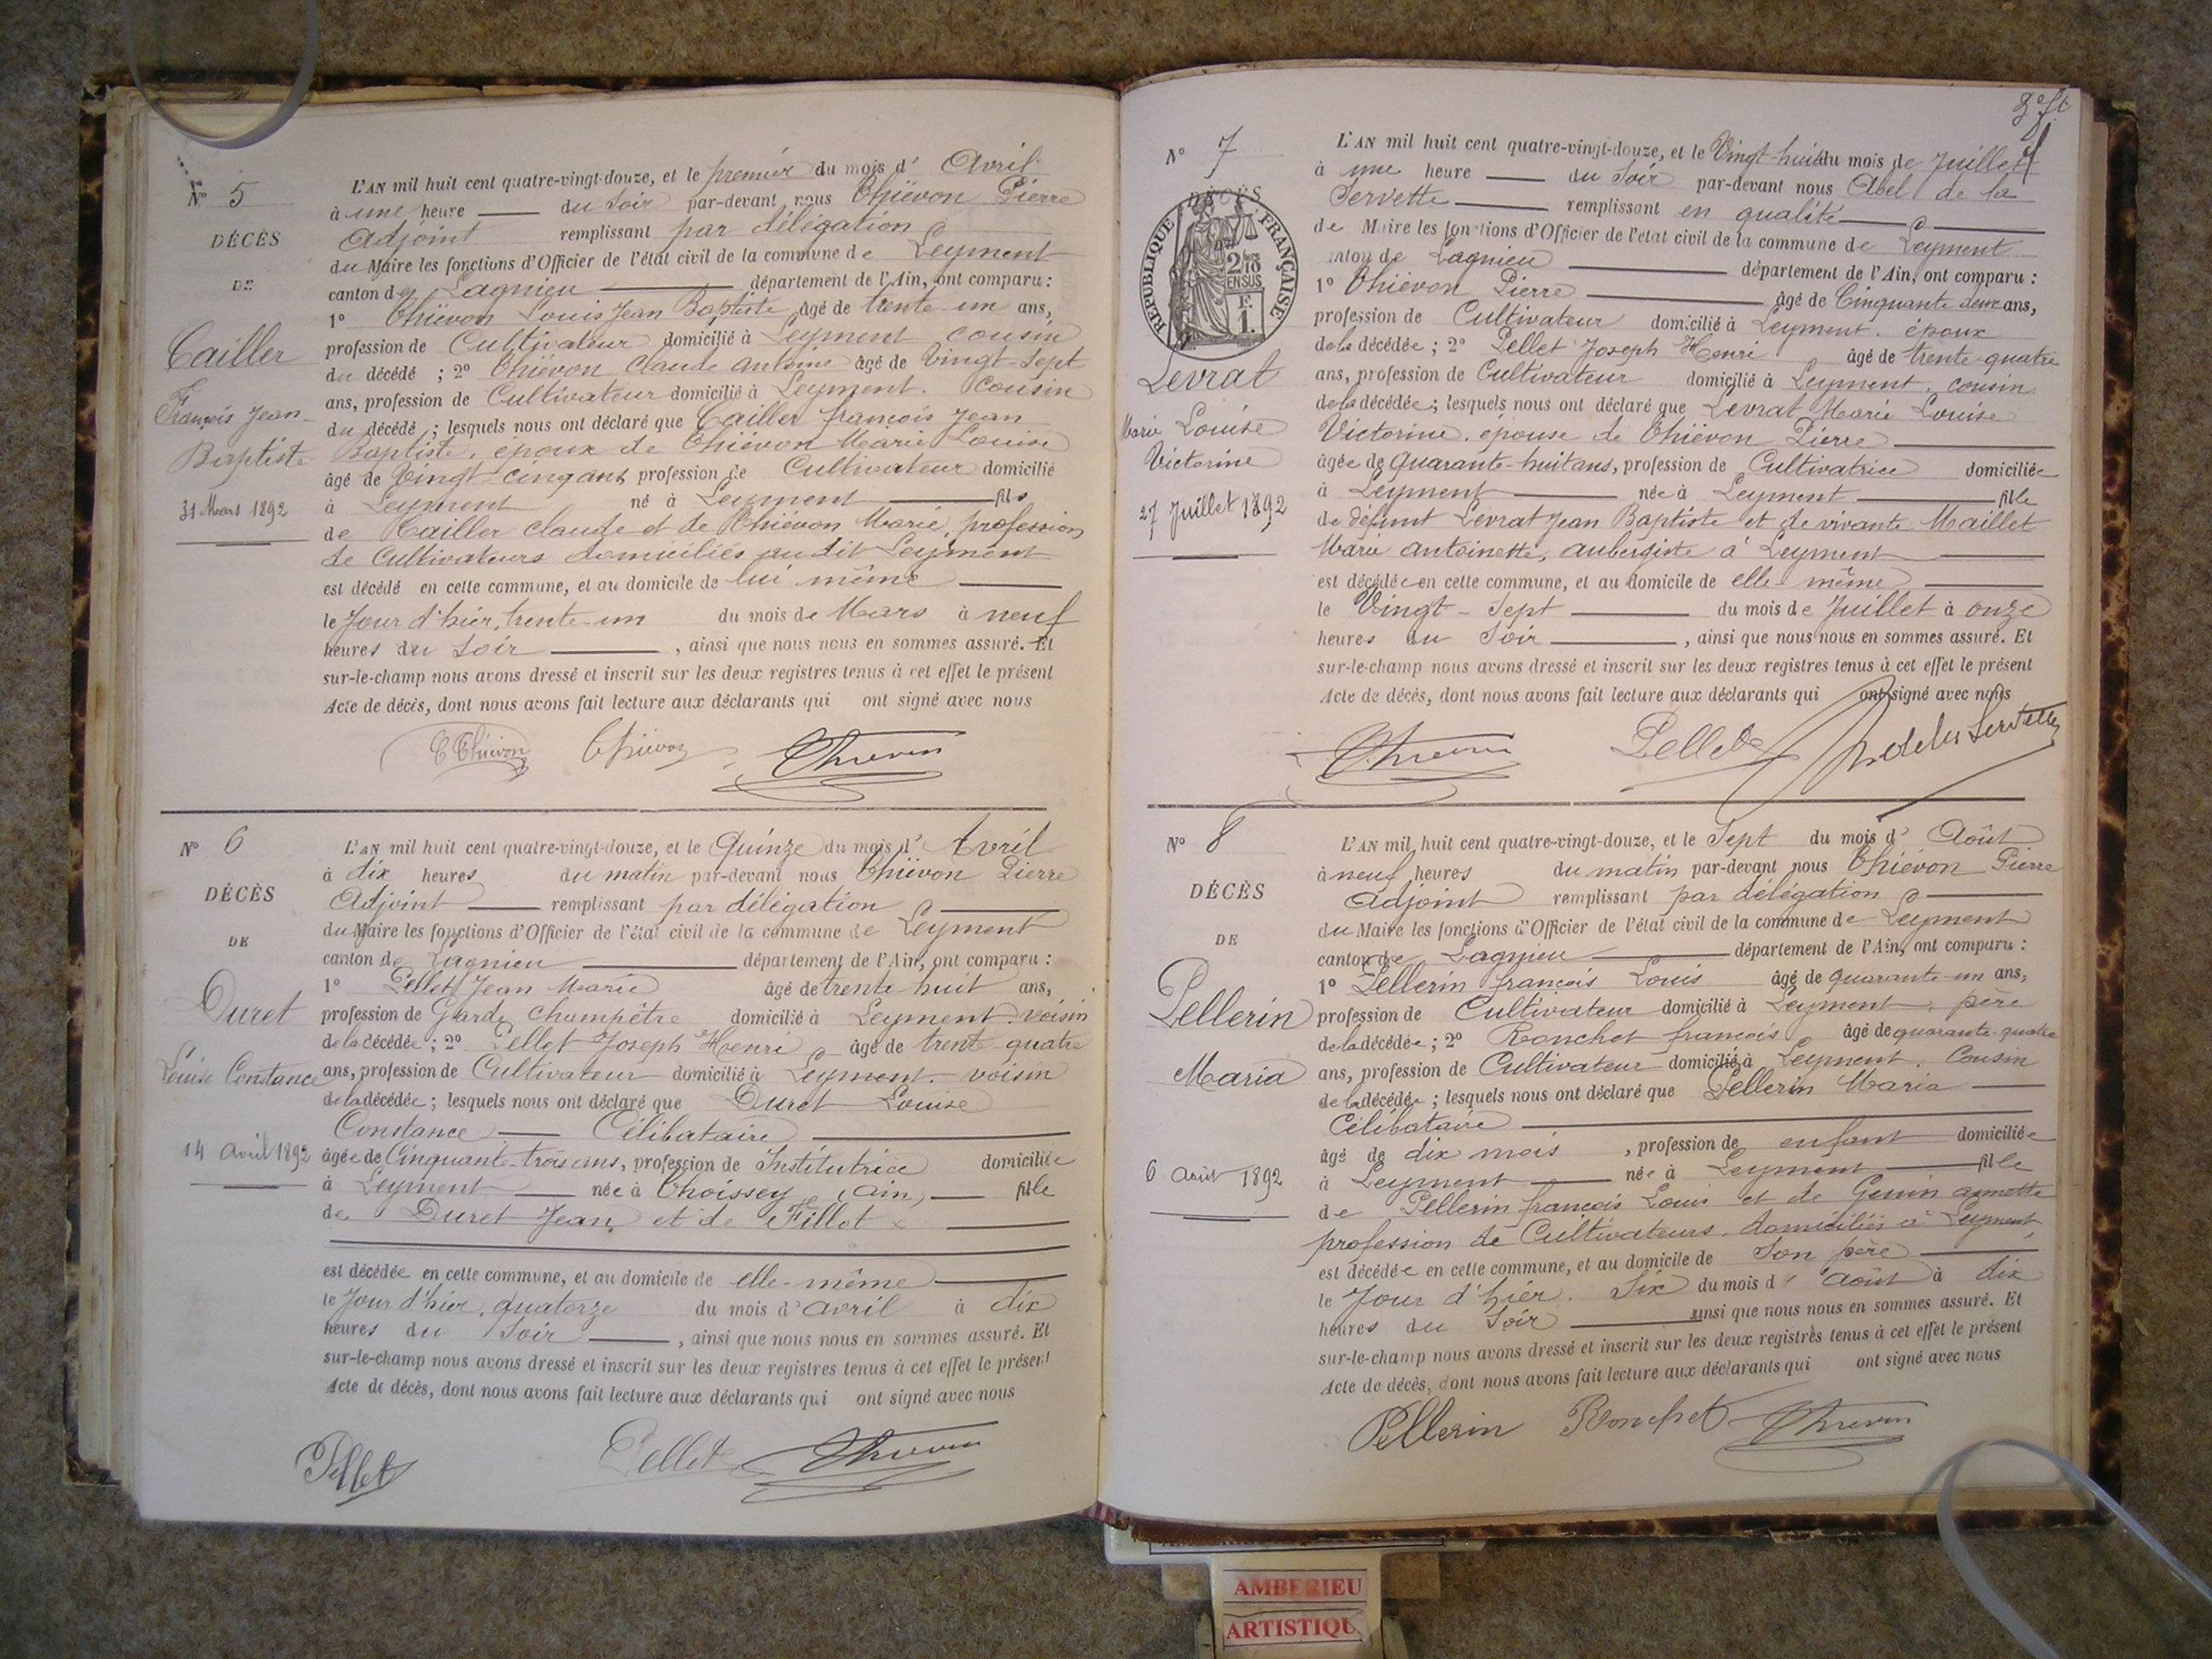 N° 5
DÉCÈS
DE
Cailler
François Jean
Baptiste
31 Mars 1892
L'AN mil huit cent quatre-vingt-douze, et le premier du mois d' Avril
à une heure du soir par-devant nous Thiévon Pierre
Adjoint remplissant par délégation
du Maire les fonctions d'Officier de l'état civil de la commune de Leyment
canton de Lagnieu département de l'Ain, ont comparu :
1° Thiévon Louis Jean Baptiste âgé de trente-un ans,
profession de Cultivateur domicilié à Leyment cousin
du décédé ; 2° Thiévon Claude Antoine âgé de Vingt-Sept
ans, profession de Cultivateur domicilié à Leyment. Cousin
du décédé ; lesquels nous ont déclaré que Cailler françois Jean
Baptiste, époux de Thiévon Marie Louise
âgé de Vingt-cinq ans profession de Cultivateur domicilié
à Leyment né à Leyment fils
de Cailler Claude et de Thiévon Marie, profession
de Cultivateurs domiciliés au dit Leyment
est décédé en cette commune, et au domicile de lui même
le Jour d'hier, trente-un du mois de Mars à neuf
heures du Soir , ainsi que nous nous en sommes assuré. Et
sur-le-champ nous avons dressé et inscrit sur les deux registres tenus à cet effet le présent
Acte de décès, dont nous avons fait lecture aux déclarants qui ont signé avec nous
C Thiévon Thiévon Thievon
N° 6
DÉCÈS
DE
Duret
Louise Constance
14 Avril 1892
L'AN mil huit cent quatre-vingt-douze, et le Quinze du mois d' Avril
à dix heures du matin par-devant nous Thiévon Pierre
Adjoint remplissant par délégation
du Maire les fonctions d'Officier de l'état civil de la commune de Leyment
canton de Lagnieu département de l'Ain, ont comparu :
1° Pellet Jean Marie âgé de trente-huit ans,
profession de Garde Champêtre domicilié à Leyment. voisin
de la décédée ; 2° Pellet Joseph Henri âgé de trent-quatre
ans, profession de Cultivateur domicilié à Leyment. voisin
de la décédée ; lesquels nous ont déclaré que Duret Louise
Constance Célibataire
âgée de Cinquante-trois ans, profession de Institutrice domiciliée
à Leyment née à Thoissey (Ain) fille
de Duret Jean et de Fillot
est décédée en cette commune, et au domicile de elle-même
le Jour d'hier, quatorze du mois d' avril à dix
heures du Soir , ainsi que nous nous en sommes assuré. Et
sur-le-champ nous avons dressé et inscrit sur les deux registres tenus à cet effet le présent
Acte de décès, dont nous avons fait lecture aux déclarants qui ont signé avec nous
Pellet Pellet Thievon
N° 7
DÉCÈS
RÉPUBLIQUE FRANÇAISE
2/10 EN SUS
F. 1.
Levrat
Marie Louise
Victorine
27 Juillet 1892
L'AN mil huit cent quatre-vingt-douze, et le Vingt-huit du mois de Juillet
à une heure du Soir par-devant nous Abel de la
Servette remplissant en qualité
de Maire les fonctions d'Officier de l'état civil de la commune de Leyment
canton de Lagnieu département de l'Ain, ont comparu :
1° Thiévon Pierre âgé de Cinquante deux ans,
profession de Cultivateur domicilié à Leyment. époux
de la décédée ; 2° Pellet Joseph Henri âgé de trente-quatre
ans, profession de Cultivateur domicilié à Leyment. cousin
de la décédée ; lesquels nous ont déclaré que Levrat Marie Louise
Victorine, épouse de Thiévon Pierre
âgée de Quarante-huit ans, profession de Cultivatrice domiciliée
à Leyment née à Leyment fille
de défunt Levrat Jean Baptiste et de vivante Maillet
Marie Antoinette, aubergiste à Leyment
est décédée en cette commune, et au domicile de elle-même
le Vingt-Sept du mois de Juillet à onze
heures du Soir , ainsi que nous nous en sommes assuré. Et
sur-le-champ nous avons dressé et inscrit sur les deux registres tenus à cet effet le présent
Acte de décès, dont nous avons fait lecture aux déclarants qui ont signé avec nous
Thievon Pellet de la Servette
N° 8
DÉCÈS
DE
Pellerin
Maria
6 Août 1892
L'AN mil huit cent quatre-vingt-douze, et le Sept du mois d' Août
à neuf heures du matin par-devant nous Thiévon Pierre
Adjoint remplissant par délégation
du Maire les fonctions d'Officier de l'état civil de la commune de Leyment
canton de Lagnieu département de l'Ain, ont comparu :
1° Pellerin françois Louis âgé de quarante-un ans,
profession de Cultivateur domicilié à Leyment, père
de la décédée ; 2° Ronchet françois âgé de quarante-quatre
ans, profession de Cultivateur domicilié à Leyment. Cousin
de la décédée ; lesquels nous ont déclaré que Pellerin Maria
Célibataire
âgé de dix mois , profession de enfant domiciliée
à Leyment née à Leyment fille
de Pellerin françois Louis et de Genin annette
profession de Cultivateurs, domiciliés à Leyment,
est décédée en cette commune, et au domicile de Son père
le Jour d'hier. Six du mois d' Août à dix
heures du Soir ainsi que nous nous en sommes assuré. Et
sur-le-champ nous avons dressé et inscrit sur les deux registres tenus à cet effet le présent
Acte de décès, dont nous avons fait lecture aux déclarants qui ont signé avec nous
Pellerin Ronchet Thievon
AMBERIEU
ARTISTIQU